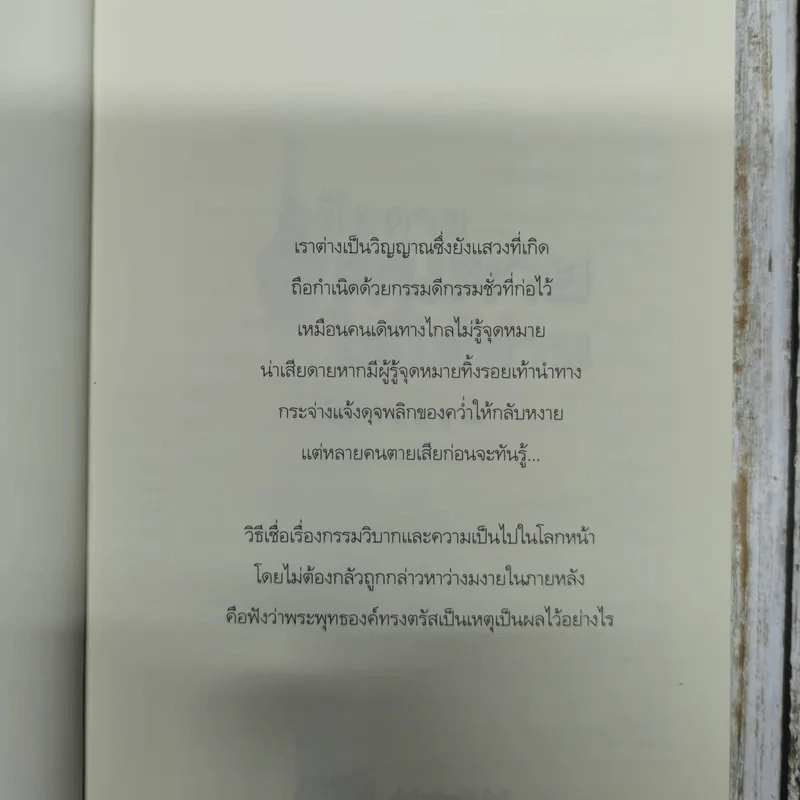 เราต่างเป็นวิญญาณซึ่งยังแสวงที่เกิด
ถือกำเนิดด้วยกรรมดีกรรมชั่วที่ก่อไว้
เหมือนคนเดินทางไกลไม่รู้จุดหมาย
น่าเสียดายหากมีผู้รู้จุดหมายทิ้งรอยเท้านำทาง
กระจ่างแจ้งดุจพลิกของคว่ำให้กลับหงาย
แต่หลายคนตายเสียก่อนจะทันรู้...
วิธีเชื่อเรื่องกรรมวิบากและความเป็นไปในโลกหน้า
โดยไม่ต้องกลัวถูกกล่าวหาว่างมงายในภายหลัง
คือฟังว่าพระพุทธองค์ทรงตรัสเป็นเหตุเป็นผลไว้อย่างไร